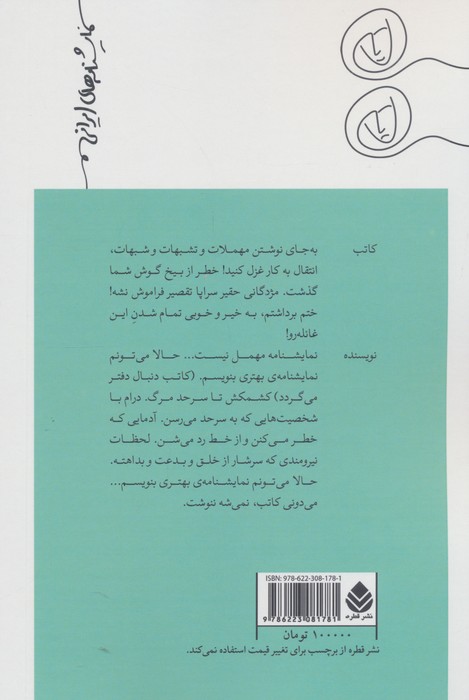 نمایشنامه‌های ایرانی
کاتب
به‌جای نوشتن مهملات و تشبهات و شبهات،
انتقال به کار غزل کنید! خطر از بیخ گوش شما
گذشت. مژدگانی حقیر سراپا تقصیر فراموش نشه!
ختم برداشتم، به خیر و خوبی تمام شدنِ این
غائله‌رو!
نویسنده
نمایشنامه مهمل نیست... حالا می‌تونم
نمایشنامه‌ی بهتری بنویسم. (کاتب دنبال دفتر
می‌گردد) کشمکش تا سرحد مرگ. درام با
شخصیت‌هایی که به سرحد می‌رسن. آدمایی که
خطر می‌کنن و از خط رد می‌شن. لحظات
نیرومندی که سرشار از خلق و بدعت و بداهته.
حالا می‌تونم نمایشنامه‌ی بهتری بنویسم...
می‌دونی کاتب، نمی‌شه ننوشت.
ISBN: 978-622-308-178-1
9 786223 081781
نشر قطره
۱۰۰۰۰۰ تومان
نشر قطره از برچسب برای تغییر قیمت استفاده نمی‌کند.